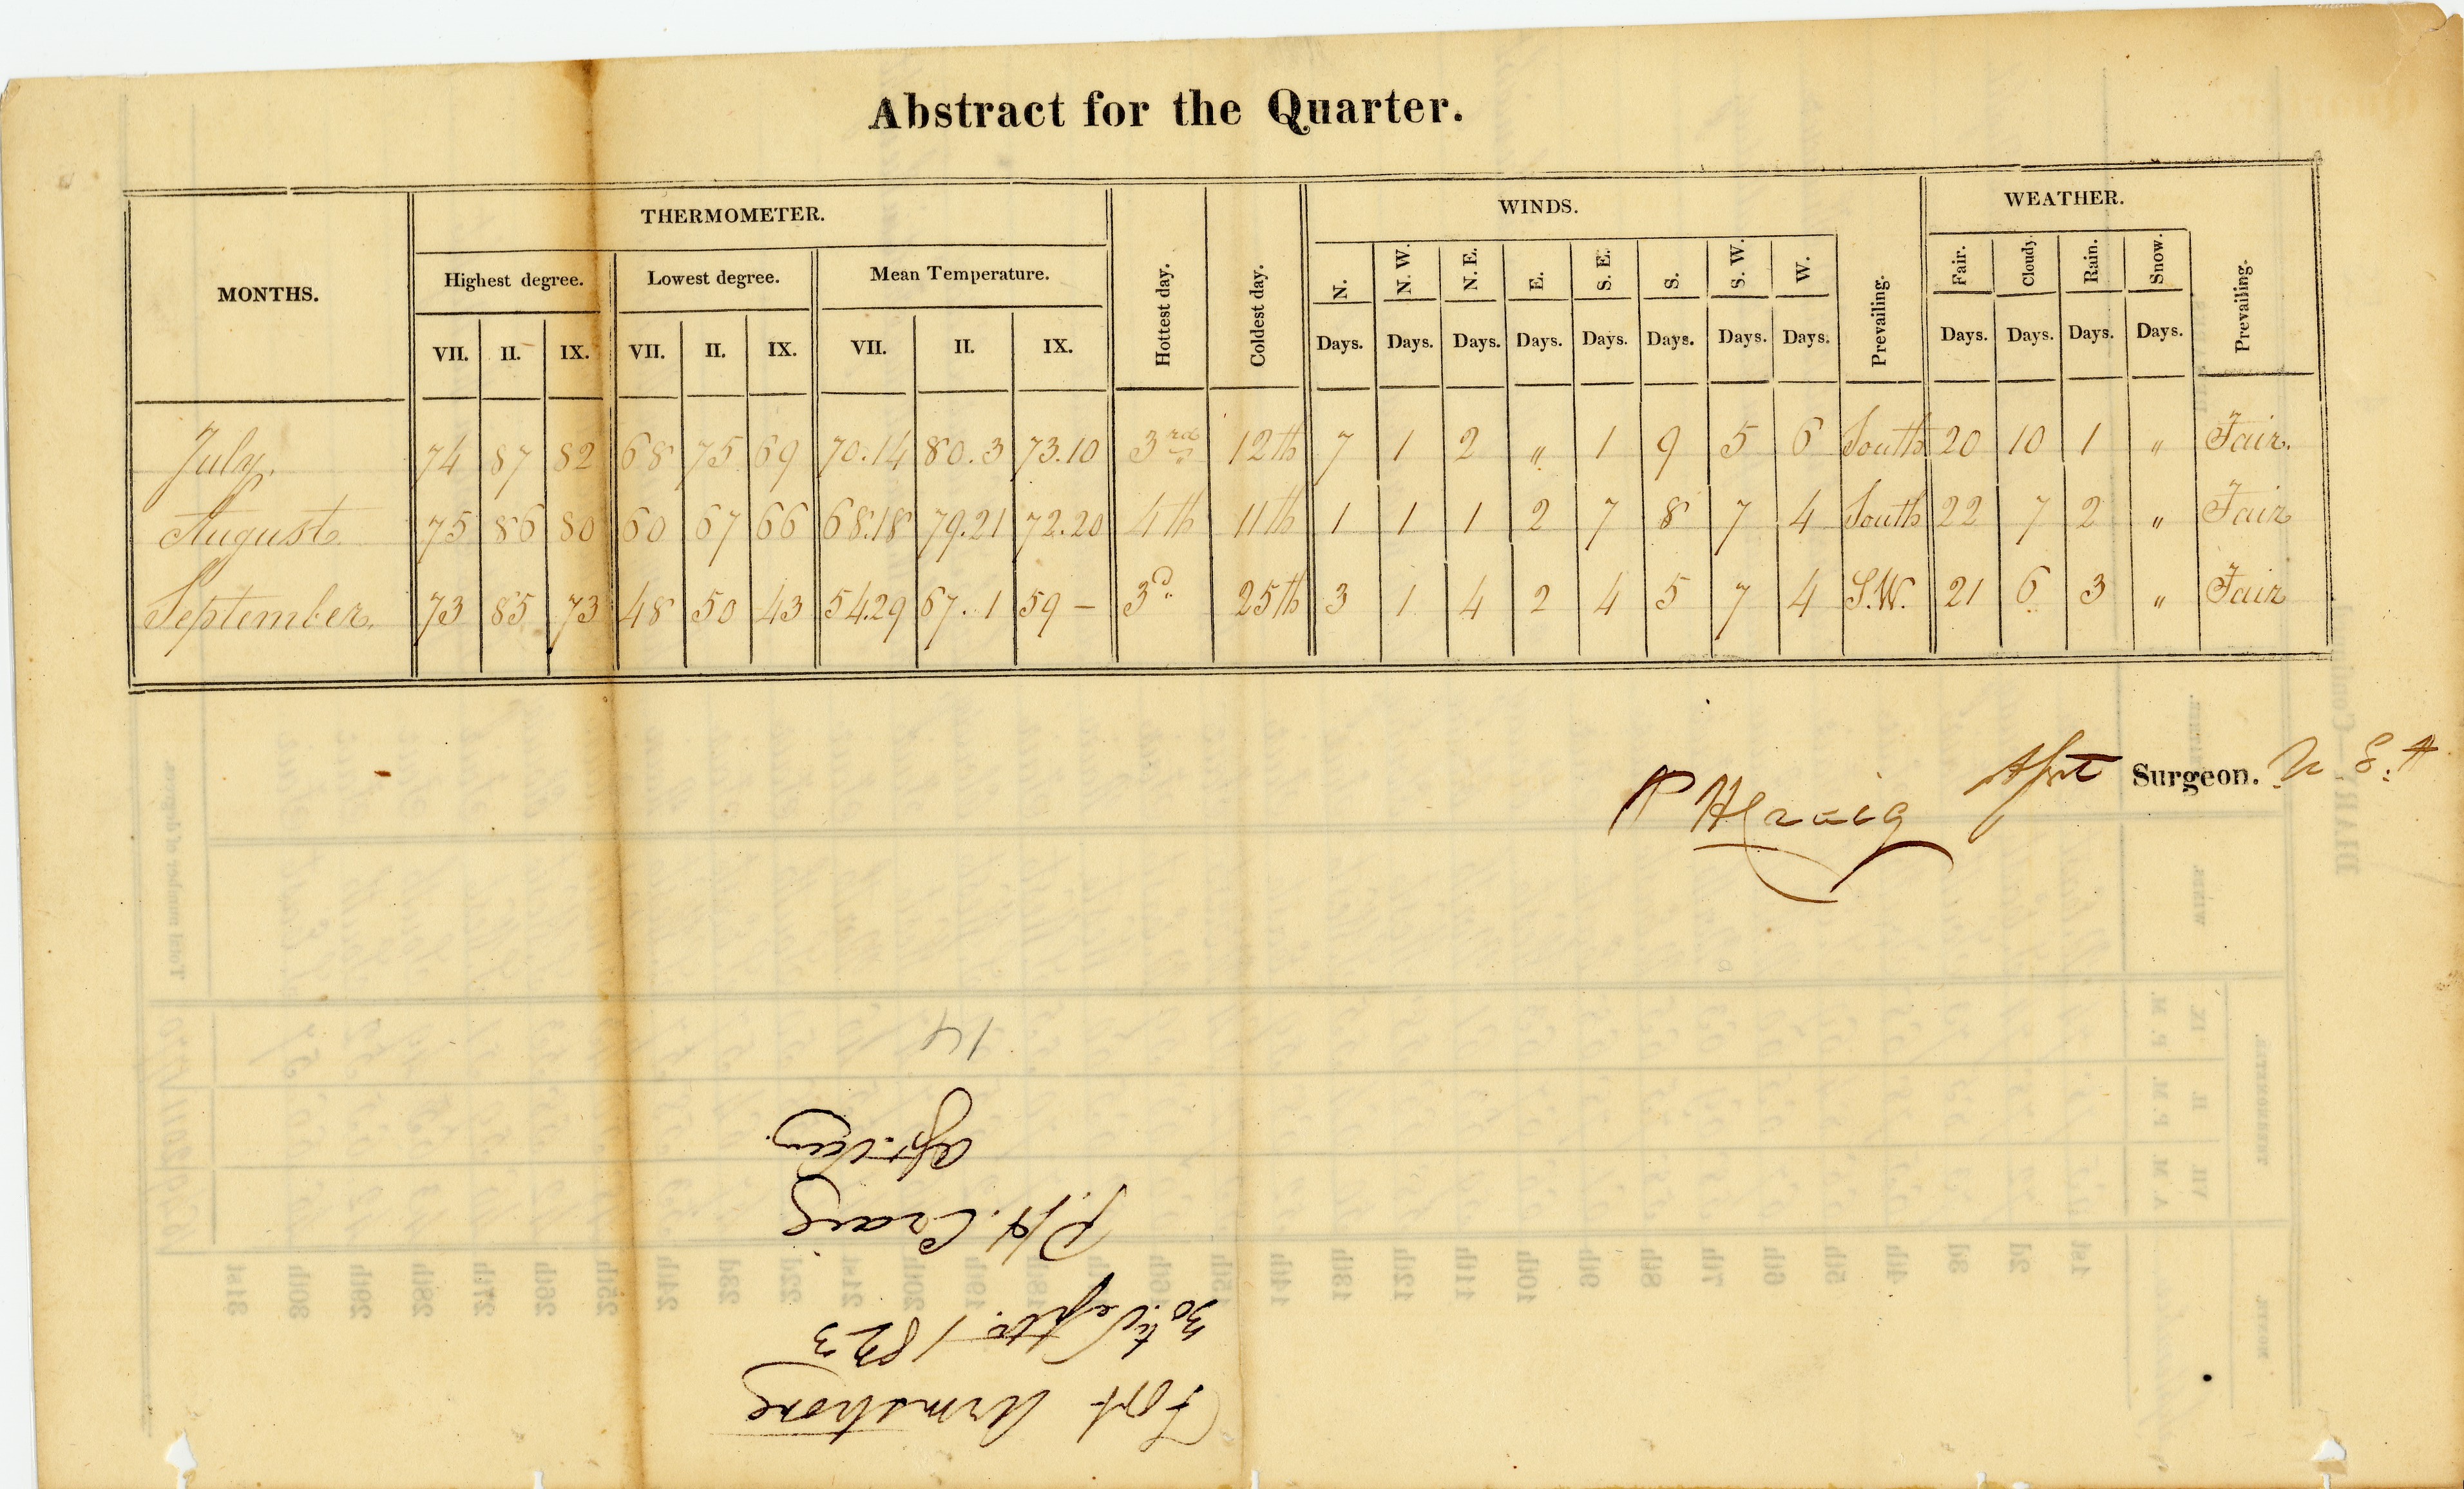 Abstract for the Quarter.
MONTHS. THERMOMETER. Hottest day. Coldest day. WINDS. WEATHER.
Highest degree. Lowest degree. Mean Temperature. N. N. W. N. E. E. S. E. S. S. W. W. Prevailing. Fair. Cloudy. Rain. Snow. Prevailing.
VII. II. IX. VII. II. IX. VII. II. IX. Days. Days. Days. Days. Days. Days. Days. Days. Days. Days. Days. Days.
July. 74 87 82 68 75 69 70.14 80.3 73.10 3rd 12th 7 1 2 „ 1 9 5 6 South 20 10 1 „ Fair.
August 75 86 80 60 67 66 68.18 79.21 72.20 4th 11th 1 1 1 2 7 8 7 4 South 22 7 2 „ Fair
September. 73 85 73 48 50 43 54.29 67.1 59 – 3d 25th 3 1 4 2 4 5 7 4 S.W. 21 6 3 „ Fair
P H Craig Asst Surgeon. U S. A
Fort Armstrong
30th Septr. 1823
P. H. Craig
Asst. Surg.
14